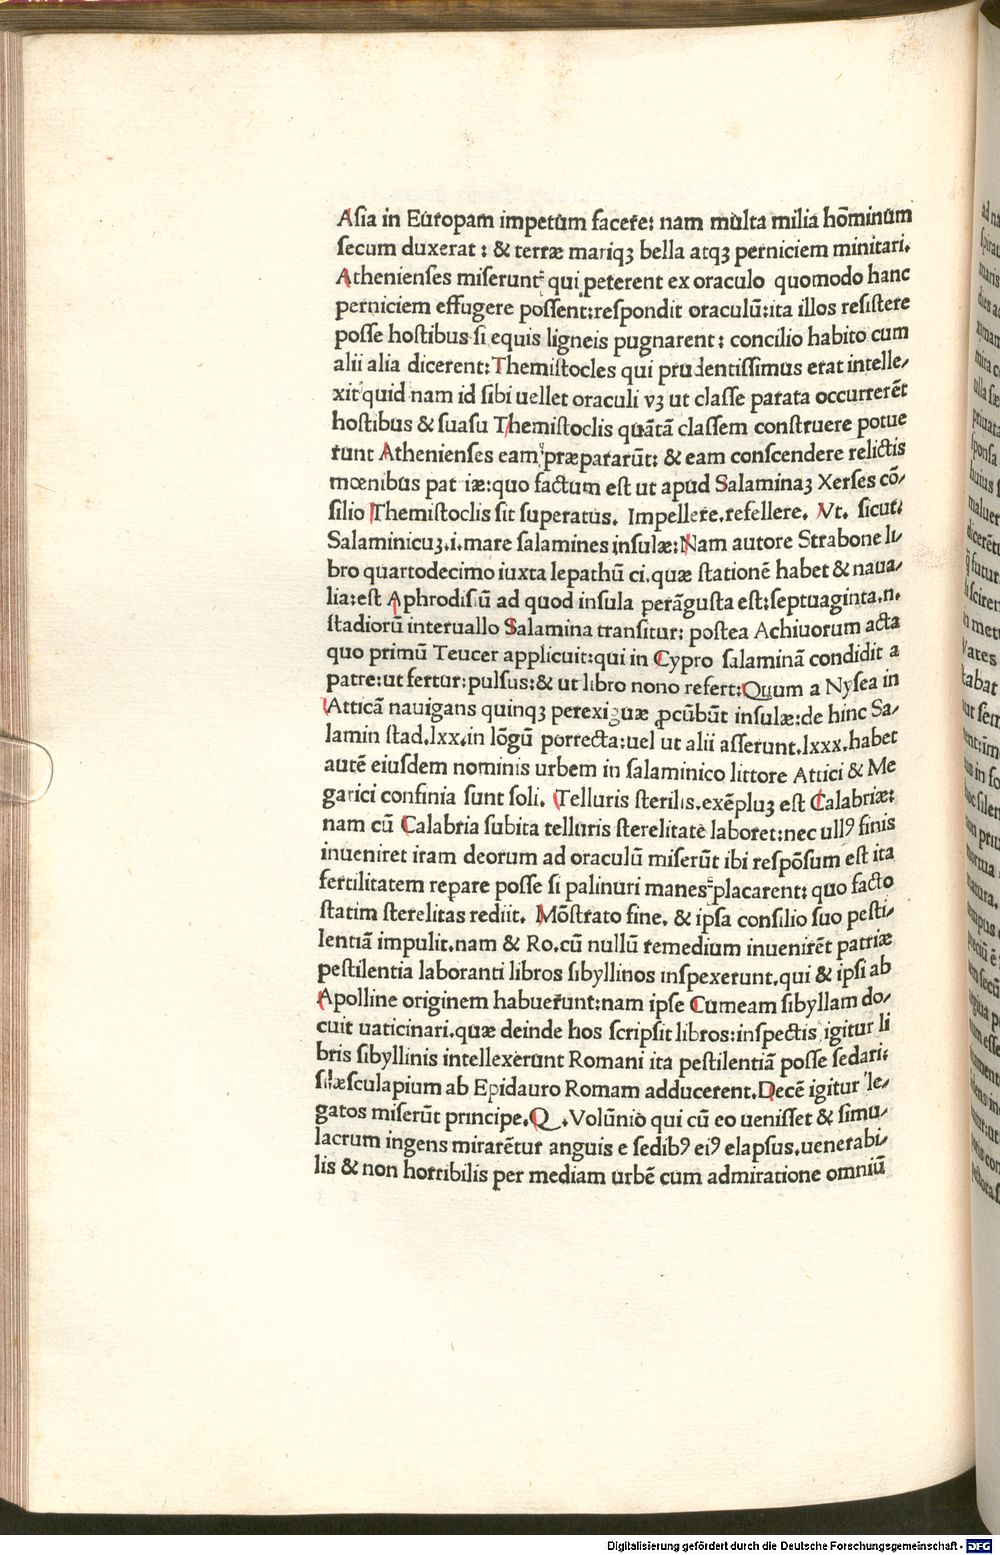 Aſia in Europam impetum facere: nam multa milia hōminum
ſecum duxerat : & terræ mariqꝫ bella atqꝫ perniciem minitari.
Athenienſes miſerunt qui peterent ex oraculo quomodo hanc
perniciem effugere poſſent:reſpondit oraculū:ita illos reſiſtere
poſſe hoſtibus ſi equis ligneis pugnarent : concilio habito cum
alii alia dicerent: Themiſtocles qui prudentiſſimus erat intelle-
xit quid nam id ſibi uellet oraculi vꝫ ut claſſe parata occurrerēt
hoſtibus & ſuaſu Themiſtoclis quātā claſſem conſtruere potue
runt Athenienſes eam præpararūt: & eam conſcendere relictis
mœnibus pat iæ:quo factum eſt ut apud Salaminaꝫ Xerſes cō-
ſilio Themiſtoclis ſit ſuperatus. Impellere.refellere. Vt. ſicut:
Salaminicuꝫ.i.mare ſalamines inſulæ: Nam autore Strabone li-
bro quartodecimo iuxta lepathū ci.quæ ſtationē habet & naua-
lia:eſt Aphrodiſiū ad quod inſula perāguſta eſt:ſeptuaginta.n.
ſtadiorū interuallo Salamina tranſitur: poſtea Achiuorum acta
quo primū Teucer applicuit:qui in Cypro ſalaminā condidit a
patre:ut fertur:pulſus:& ut libro nono refert:Quum a Nyſea in
Atticā nauigans quinqꝫ perexiguæ ꝓcūbūt inſulæ:de hinc Sa-
lamin ſtad.lxx.in lōgū porrecta:uel ut alii aſſerunt.lxxx.habet
autē eiuſdem nominis urbem in ſalaminico littore Attici & Me
garici confinia ſunt ſoli. Telluris ſterilis.exēpluꝫ eſt Calabriæ:
nam cū Calabria ſubita telluris ſterelitatē laboret:nec ullꝰ finis
inueniret iram deorum ad oraculū miſerūt ibi reſpōſum eſt ita
fertilitatem repare poſſe ſi palinuri manes placarent: quo facto
ſtatim ſterelitas rediit. Mōſtrato fine. & ipſa conſilio ſuo peſti-
lentiā impulit.nam & Ro.cū nullū remedium inuenirēt patriæ
peſtilentia laboranti libros ſibyllinos inſpexerunt.qui & ipſi ab
Apolline originem habuerunt:nam ipſe Cumeam ſibyllam do-
cuit uaticinari.quæ deinde hos ſcripſit libros:inſpectis igitur li
bris ſibyllinis intellexerunt Romani ita peſtilentiā poſſe ſedari:
ſi æſculapium ab Epidauro Romam adducerent. Decē igitur le-
gatos miſerūt principe. Q. Volūnio qui cū eo ueniſſet & ſimu-
lacrum ingens mirarētur anguis e ſedibꝰ eiꝰ elapſus.uenerabi-
lis & non horribilis per mediam urbē cum admiratione omniū
Digitalisierung gefördert durch die Deutsche Forschungsgemeinschaft - DFG